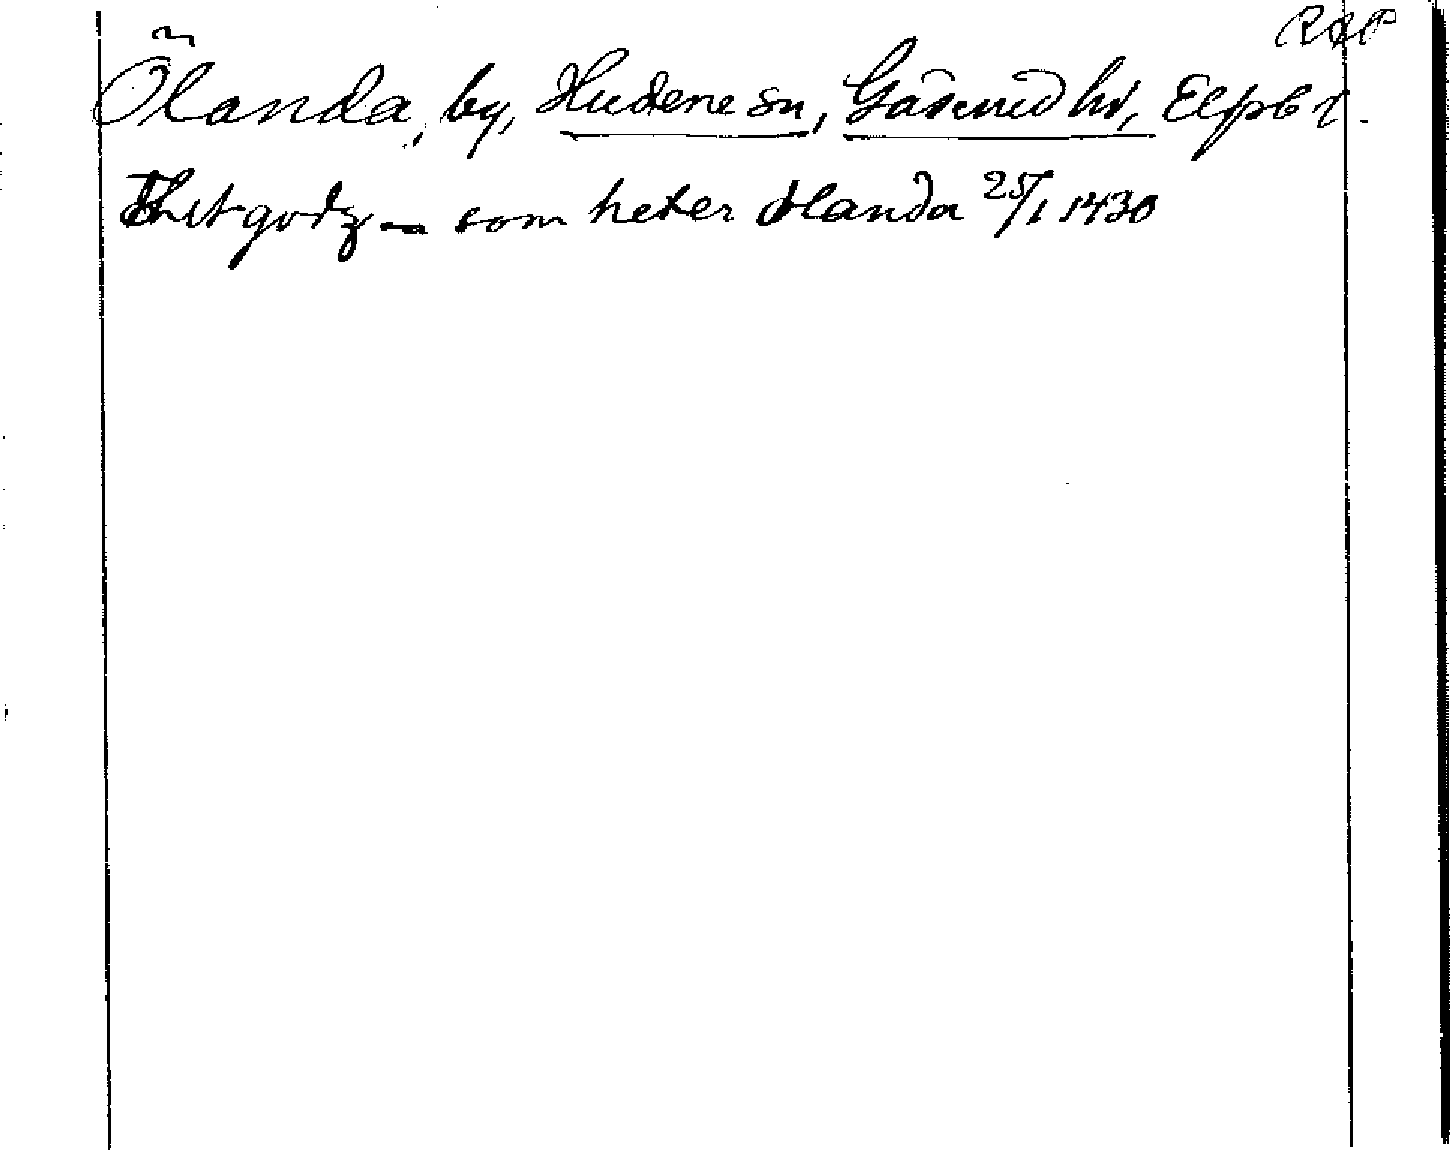 RAP
Ölanda, by, Hudene sn, Gäsened hd, Elfsb l.
Thet godz – som heter Ølanda 25/1 1430